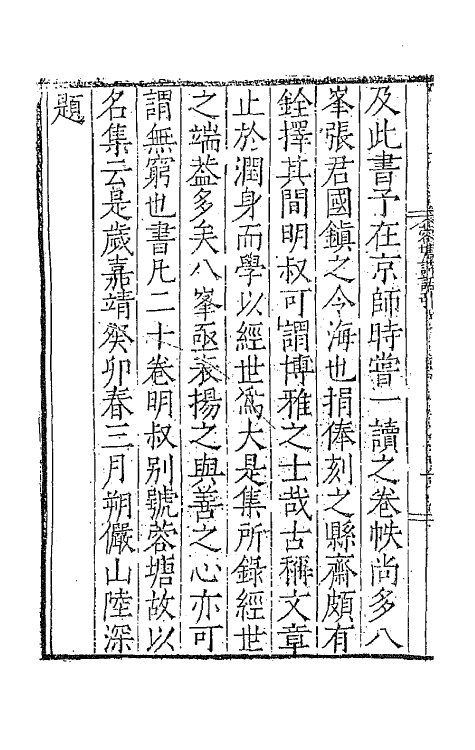 及此書予在京師時嘗一讀之卷帙尚多八
峯張君國鎮之令海也捐俸刻之縣齋頗有
銓擇其間明叔可謂博雅之士哉古稱文章
止於潤身而學以經世爲大是集所錄經世
之端葢多矣八峯亟袠揚之與善之心亦可
謂無窮也書凡二十卷明叔别號蓉塘故以
名集云是歲嘉靖癸卯春三月朔儼山陸深
題